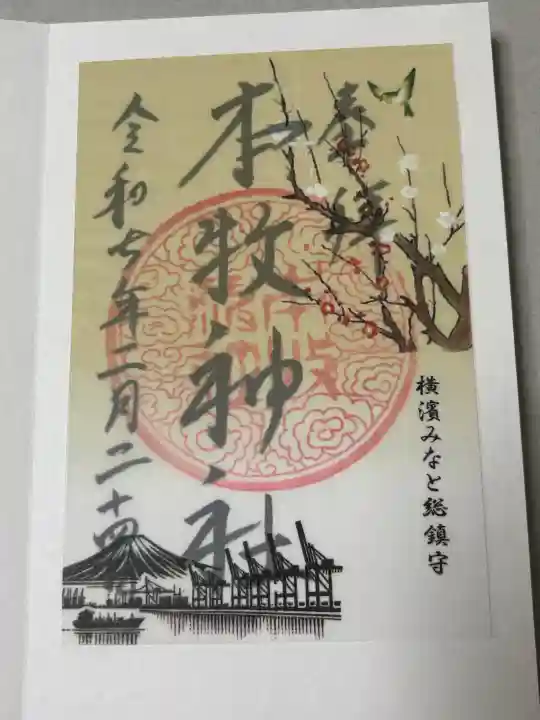 奉拝
本牧神社
令和七年二月二十四
横濱みなと総鎮守